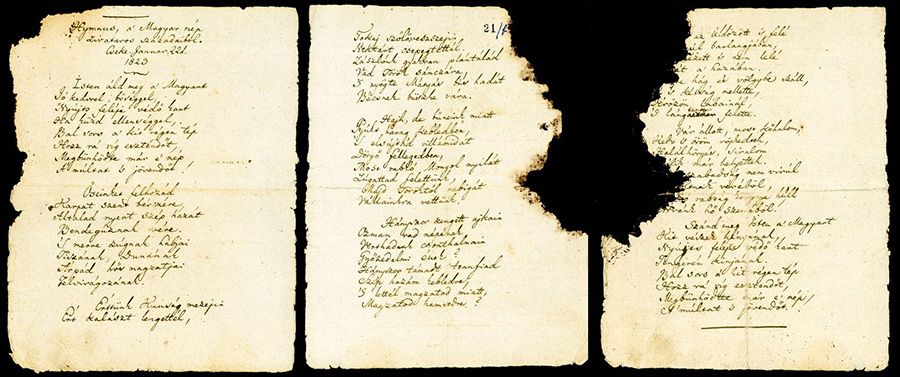 Hymnus, a' Magyar nép
zivataros századaiból.
Cseke, Január. 22d.
1823
Isten áld meg a' Magyart
Jó kedvvel, bőséggel,
Nyújts feléje védő kart
Ha küzd ellenséggel;
Bal sors a' kit régen tép
Hozz rá víg esztendőt,
Megbűnhödte már e' nép
A' múltat 's jövendőt!
Őseinket felhozád
Kárpát szent bérczére,
Általad nyert szép hazát
Bendegúznak vére.
'S merre zúgnak habjai
Tiszának, Dunának
Árpád hős magzatjai
Felvirágzának.
Értünk Kunság mezejin
Ért kalászt lengettél,
21/
Tokaj szőlővesszejin
Nektárt csepegtettél.
Zászlónk gyakran plántálád
Vad Török sánczára,
'S nyögte Mátyás bús hadát
Bécsnek büszke vára.
Hajh, de bűneink miatt
Gyúlt harag kebledben,
'S elsújtád villámidat
Dörgő fellegedben,
Most rabló Mongol nyilát
Zúgattad felettünk,
Majd Töröktől rabigát
Vállainkra vettünk.
Hányszor zengett ajkain
Ozman vad népének
Vert hadunk csonthalmain
Győzedelmi ének!
Hányszor támadt tenfiad
Szép hazám kebledre,
'S lettél magzatod miatt,
Magzatod hamvvedre?
az üldözött 's felé
barlangjában,
nézett 's nem lelé
a' hazában.
hág és völgybe száll,
's kétség mellette,
Vérözön lábainál,
'S lángtenger felette.
Vár állott, most kőhalom,
Kedv 's öröm röpkedtek,
Halálhörgés, siralom
már helyettek.
szabadság nem virúl
véréből,
rabság könnye hull
hő szeméből.
Szánd meg Isten a' Magyart
Kit vészek hányának,
Nyújts feléje védő kart
Tengerén kínjának.
Bal sors a' kit régen tép
Hozz rá víg esztendőt,
Megbűnhödte már e' nép
A' múltat 's jövendőt!